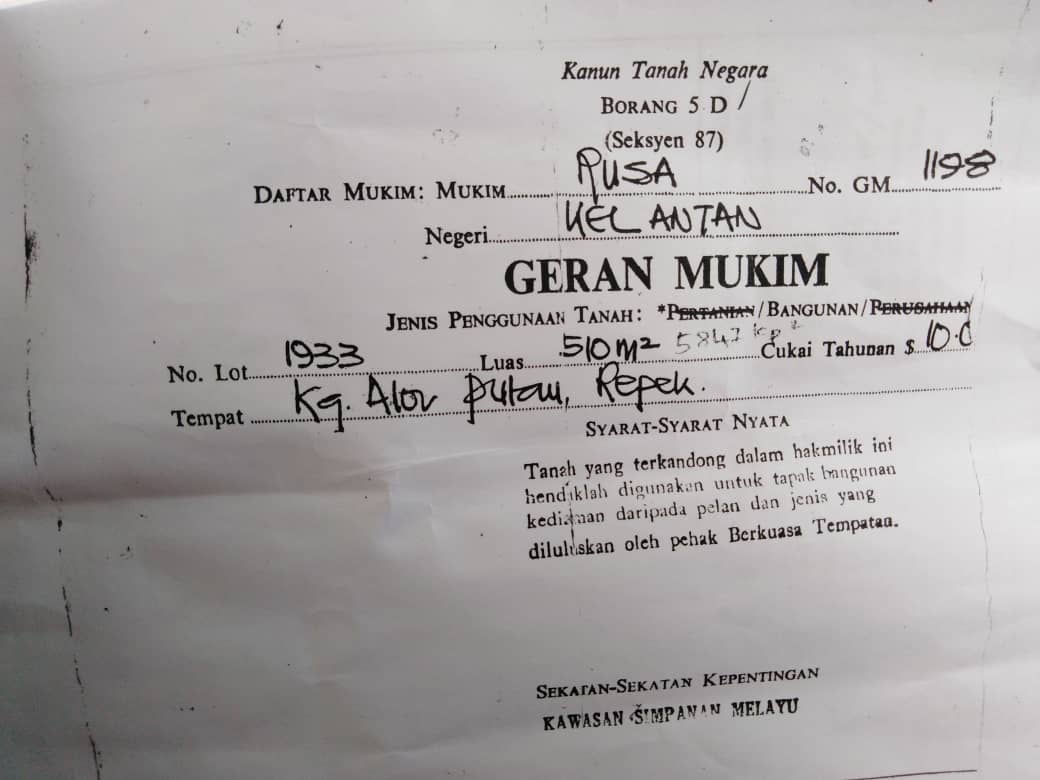 Kanun Tanah Negara
BORANG 5 D
(Seksyen 87)
DAFTAR MUKIM: MUKIM RUSA No. GM 1198
Negeri KELANTAN
GERAN MUKIM
JENIS PENGGUNAAN TANAH: *PERTANIAN/BANGUNAN/PERUSAHAAN
No. Lot 1933 Luas 510 m² 5847 kp² Cukai Tahunan $ 10.0
Tempat Kg. Alor Repek.
SYARAT-SYARAT NYATA
Tanah yang terkandong dalam hakmilik ini
hendiklah digunakan untuk tapak bangunan
kediaman daripada pelan dan jenis yang
diluluskan oleh pehak Berkuasa Tempatan.
SEKATAN-SEKATAN KEPENTINGAN
KAWASAN SIMPANAN MELAYU